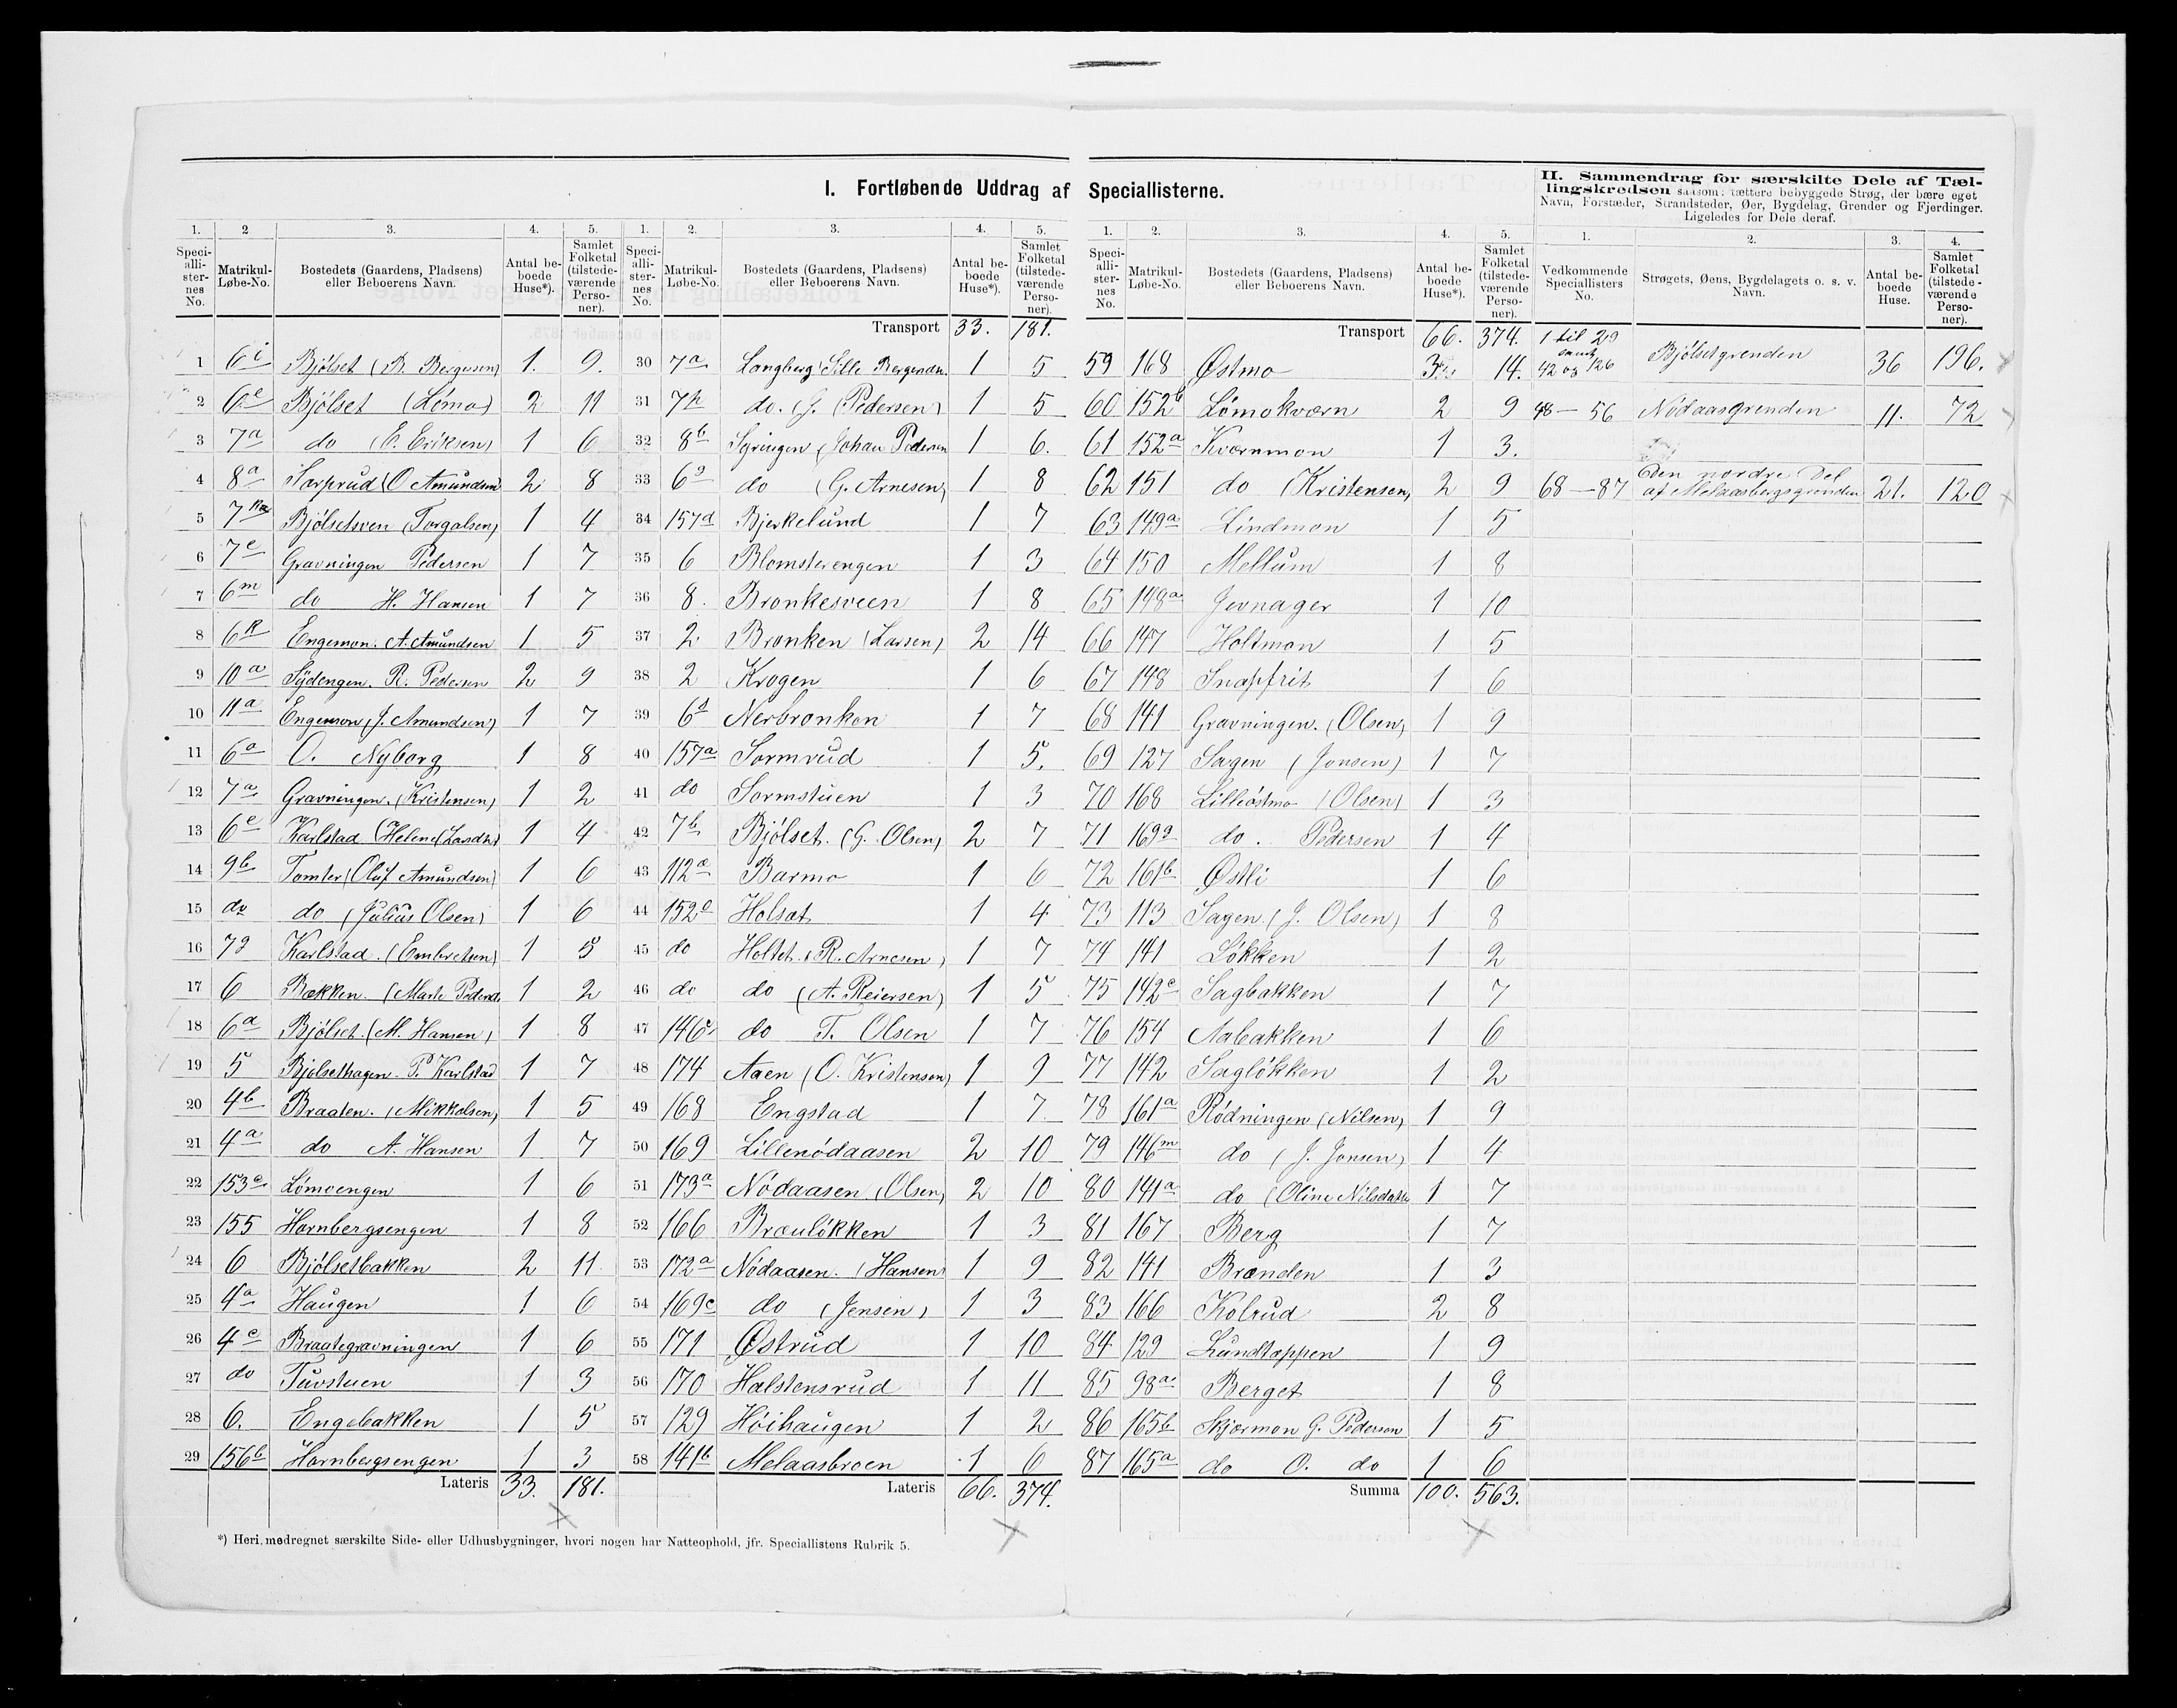 I. Fortløbende Uddrag af Speciallisterne.
II. Sammendrag for særskilte Dele af Tæl-
lingskredsen saasom: tættere bebyggede Strøg, der bære eget
Navn, Forstæder, Strandsteder, Øer, Bygdelag, Grender og Fjerdinger.
Ligeledes for Dele deraf.
1. 2 3. 4. 5.
Speciallisternes No. Matrikul-Løbe-No. Bostedets (Gaardens, Pladsens) eller Beboerens Navn. Antal beboede Huse*). Samlet Folketal (tilstedeværende Personer).
1 6i Bjölset (B. Bergersen) 1. 9.
2 6e Bjölset (Lömo) 2 11
3 7a do (E. Eriksen) 1 6
4 8a Sarprud (O Amundsen 2 8
5 7 Bjölsetsven (Torgalsen) 1 4
6 7e Gravningen Pedersen 1 7
7 6m do H. Hansen 1 7
8 6k Engemon. A. Amundsen 1 5
9 10a Sydengen. R. Pedersen 2 9
10 11a Engemon (J. Amundsen) 1 7
11 6a O. Nyborg 1 8
12 7a Gravningen. (Kristensen) 1 2
13 6e Karlstad (Helene Larsdtr) 1 4
14 9b Tomter (Oluf Amundsen) 1 6
15 do do (Julius Olsen) 1 6
16 7g Karlstad. (Embretsen) 1 5
17 6 Bækken. (Marte Pedersd. 1 2
18 6a Bjölset. (M. Hansen) 1 8
19 5 Bjölsethagen P. Karlstad 1 7
20 4b Braaten. (Mikkelsen) 1 5
21 4a do A. Hansen 1 7
22 153c Lömoengen 1 6
23 155 Hornbergsengen 1 8
24 6 Bjölsetbakken 2 11
25 4a Haugen 1 6
26 4c Braategravningen 1 6
27 do Tuvstuen 1 3
28 6. Engebakken 1 5
29 156b Hornbergsengen 1 3
Lateris 33. 181.
1. 2. 3. 4. 5.
Speciallisternes No. Matrikul-Løbe-No. Bostedets (Gaardens, Pladsens) eller Beboerens Navn. Antal beboede Huse*). Samlet Folketal (tilstedeværende Personer).
Transport 33. 181.
30 7a Langberg Sille Bergersdtr. 1 5
31 7h do. (J. Pedersen) 1 5
32 8b Syringen (Johan Pedersen 1 6.
33 6g do (G. Arnesen) 1 8
34 157d Bjerkelund 1 7
35 6 Blomsterengen 1 3
36 8. Bronkesveen 1 8
37 2. Bronken (Larsen) 2 14
38 2 Krogen 1 6
39 6d Nerbronken 1 7
40 157a Sormrud 1 5.
41 do Sormstuen 1 3
42 7b Bjölset. (G. Olsen) 2 7
43 112a Barmo 1 6
44 152e Holset 1 4
45 do Holtet. (R. Arnesen) 1 7
46 do do (A. Reiersen) 1 5
47 146 do T. Olsen 1 7
48 174 Aaen (O. Kristensen) 1 9
49 168 Engstad 1 7
50 169 Lillenödaasen 2 10
51 173a Nödaasen (Olsen) 2 10
52 166 Brænlökken 1 3
53 172a Nödaasen. (Hansen) 1 9
54 169c do (Jensen) 1 3
55 171 Østrud 1 10
56 170 Halstensrud 1 11
57 129 Höihaugen 1 2
58 141b Melaasbroen 1 6
Lateris 66. 374.
*) Heri medregnet særskilte Side- eller Udhusbygninger, hvori nogen har Natteophold, jfr. Speciallistens Rubrik 5.
1. 2. 3. 4. 5.
Speciallisternes No. Matrikul-Løbe-No. Bostedets (Gaardens, Pladsens) eller Beboerens Navn. Antal beboede Huse*). Samlet Folketal (tilstedeværende Personer).
Transport 66. 374.
59 168 Østmo 3 14.
60 152b Lömokværn 2 9
61 152a Kværnmon 1 3.
62 151 do (Kristensen) 2 9
63 149a Lindmon 1 5
64 150 Mellum 1 8
65 148a Jevnager 1 10
66 147 Holtmon 1 5
67 148 Snapfrit 1 6
68 141 Gravningen. (Olsen) 1 9
69 127 Sagen (Jonsen) 1 7
70 168 Lilleöstmo (Olsen) 1 3
71 169g do. Pedersen 1 4
72 161b Østli 1 6
73 113 Sagen. (J. Olsen) 1 8
74 141 Lökken 1 2
75 142c Sagbakken 1 7
76 154 Aabakken 1 6
77 142 Saglökken 1 2
78 161a Rödningen (Nilsen) 1 9
79 146m do (J. Jonsen) 1 4
80 141a do (Oline Nilsdatter 1 7
81 167 Berg 1 7
82 141 Brænden 1 3
83 166 Kolrud 2 8
84 129 Lundtoppen 1 9
85 98a Berget 1 8
86 165b Skjærmon G. Pedersen 1 5
87 165a do O. do 1 6
Summa 100. 563.
1. 2. 3. 4.
Vedkommende Speciallisters No. Strøgets, Øens, Bygdelagets o. s. v. Navn. Antal beboede Huse. Samlet Folketal (tilstedeværende Personer).
1 til 29
samt
42 og 126 Bjölsetgrenden 36 196.
48 - 56 Nödaasgrenden 11. 72
68 - 87 Den nordre Del
af Melaasbergsgrenden 21. 120